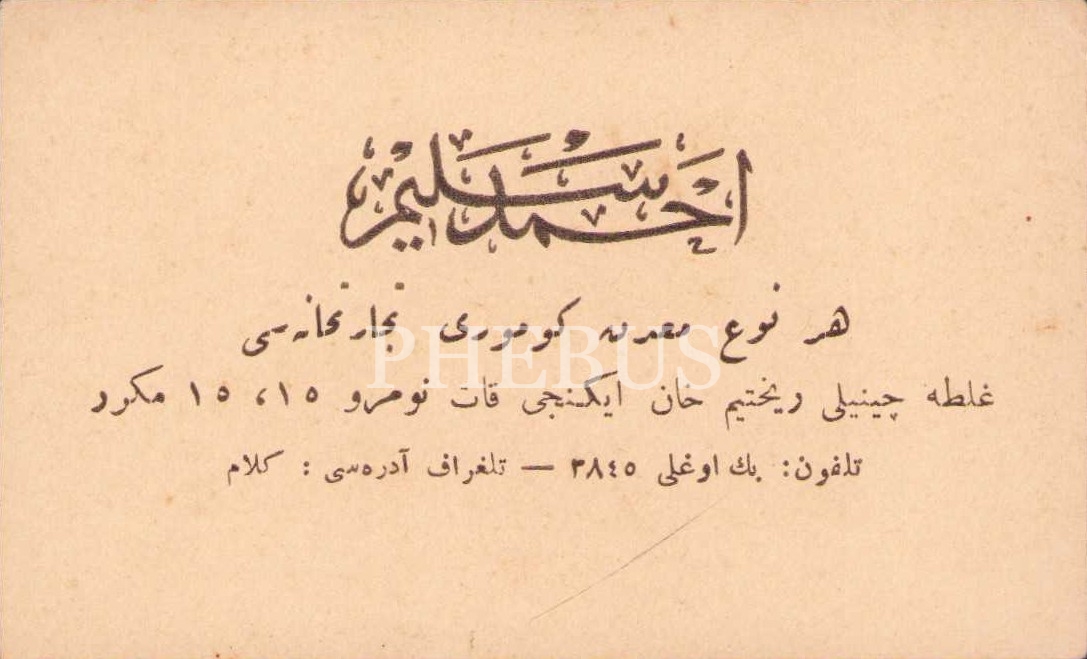 احمد سليم
هر نوع معدن كومورى تجارتخانه‌سى
PHEBUS
غلطه چينيلى ريختيم خان ايكنجى قات نومرو ١٥، ١٥ مكرر
تلفون: بك اوغلى ٣٨٤٥ — تلغراف آدره‌سى : كلام